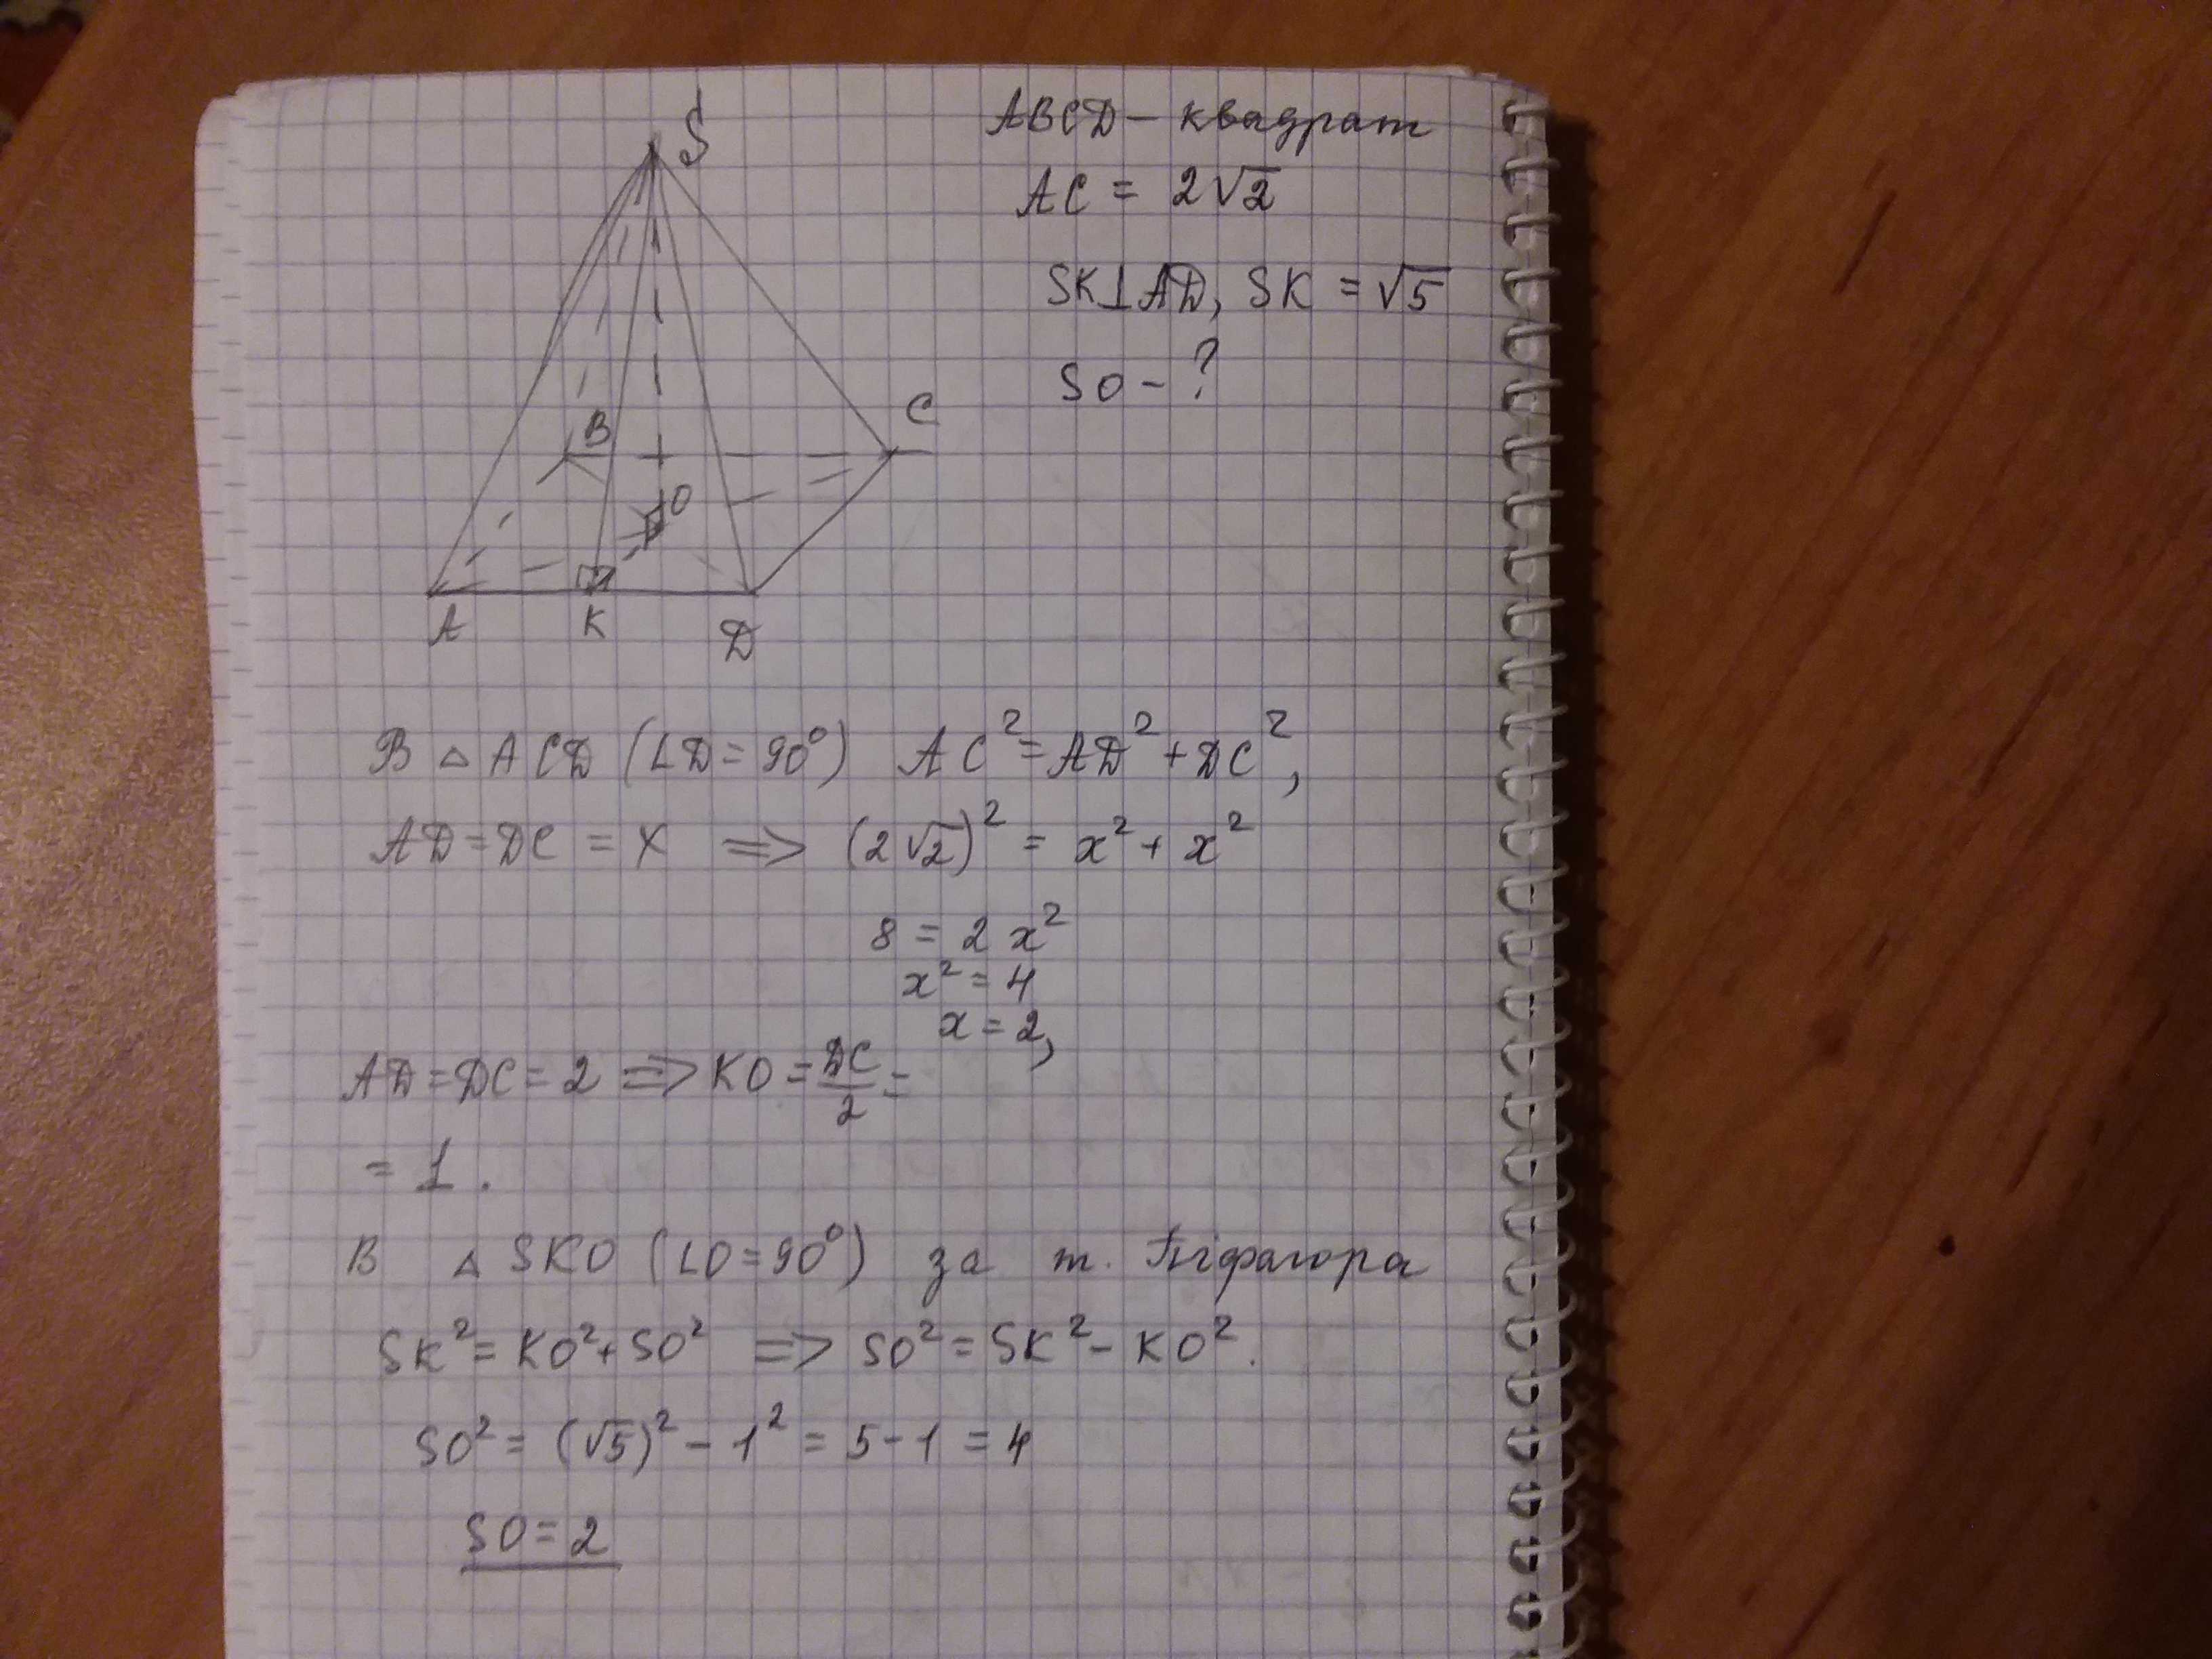 S
ABCD – квадрат
AC = 2√2
SK⊥AD, SK = √5
SO – ?
B
C
O
A
K
D
В △ ACD (∠D = 90°) AC² = AD² + DC²,
AD = DC = x => (2√2)² = x² + x²
8 = 2x²
x² = 4
x = 2,
AD = DC = 2 => KO = DC/2 =
= 1.
В △ SKO (∠O = 90°) за т. Піфагора
SK² = KO² + SO² => SO² = SK² – KO².
SO² = (√5)² – 1² = 5 – 1 = 4
SO = 2